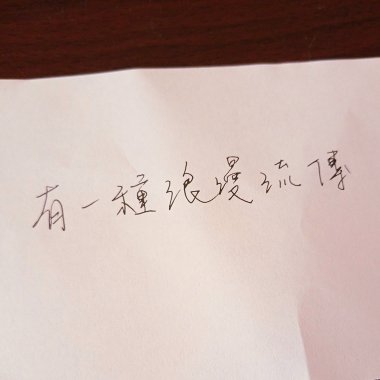 有一種浪漫流傳